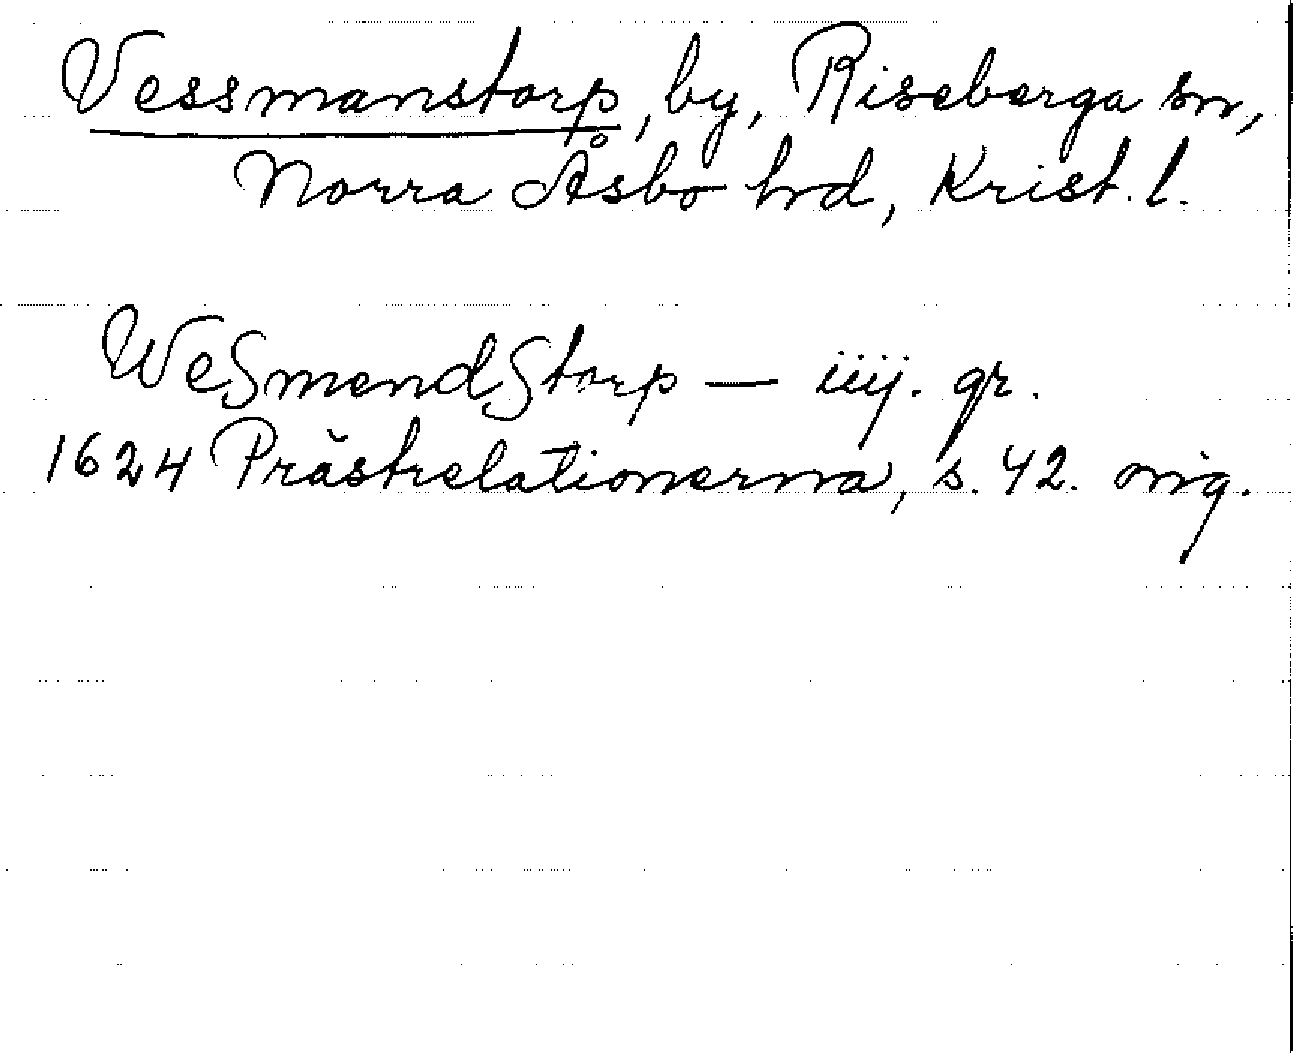 Vessmanstorp, by, Riseberga sn,
Norra Åsbo hrd, Krist. l.
WeSmendStorp — iiij. gr.
1624 Prästrelationerna, s. 42. orig.